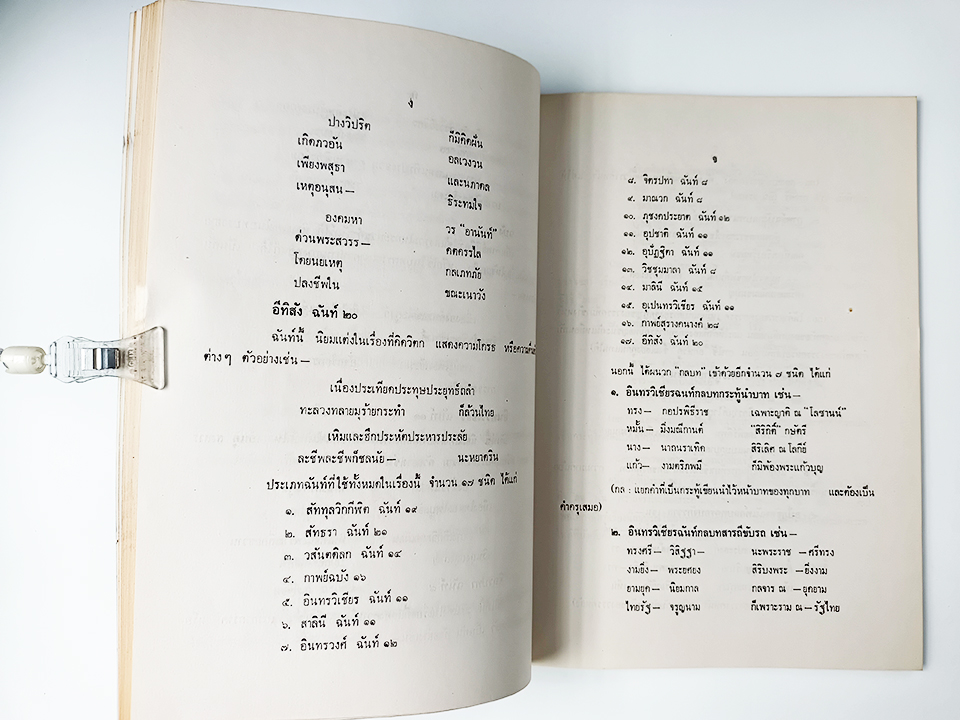 ง
ปางวิปริต ก็มิคิดผัน
เกิดภวอัน อลเวงวน
เพียงพสุธา และนภาดล
เหตุอนุสน— ธิระทมใจ
องคมหา วร "อานันท์"
ด่วนพระสวรร— คตครรไล
โดยนยเหตุ กลเภทภัย
ปลงชีพใน ขณะเนาวัง
อีทิสัง ฉันท์ ๒๐
ฉันท์นี้ นิยมแต่งในเรื่องที่คิดวิตก แสดงความโกรธ หรือความ
ต่าง ๆ ตัวอย่างเช่น—
เนื่องประเทียดประทุษประยุทธ์ถลำ
ทะลวงทลายมุร้ายกระทำ ก็ล้วนไทย
เหิมและฮึกประหัตประหารประลัย
ละชีพละชีพก็ชลนัย— นะหยาดริน
ประเภทฉันท์ที่ใช้ทั้งหมดในเรื่องนี้ จำนวน ๑๗ ชนิด ได้แก่
๑. สัททุลวิกกีพิต ฉันท์ ๑๙
๒. สัทธรา ฉันท์ ๒๑
๓. วสันตติลก ฉันท์ ๑๔
๔. กาพย์ฉบัง ๑๖
๕. อินทรวิเชียร ฉันท์ ๑๑
๖. สาลินี ฉันท์ ๑๑
๗. อินทรวงศ์ ฉันท์ ๑๒
จ
๘. จิตรปทา ฉันท์ ๘
๙. มาณวก ฉันท์ ๘
๑๐. ภุชงคประยาต ฉันท์ ๑๒
๑๑. อุปชาติ ฉันท์ ๑๑
๑๒. อุปัฏฐิตา ฉันท์ ๑๑
๑๓. วิชชุมมาลา ฉันท์ ๘
๑๔. มาลินี ฉันท์ ๑๕
๑๕. อุเปนทรวิเชียร ฉันท์ ๑๑
๑๖. กาพย์สุรางคนางค์ ๒๘
๑๗. อีทิสัง ฉันท์ ๒๐
นอกนี้ ได้ผนวก "กลบท" เข้าด้วยอีกจำนวน ๗ ชนิด ได้แก่
๑. อินทรวิเชียรฉันท์กลบทกระทู้นำบาท เช่น—
ทรง— กอปรพิธีราช เฉพาะญาติ ณ "โลซานน์"
หมั้น— มิ่งมณีกานต์ "สิริกิติ์" กษัตรี
นาง— นาถนราเทิด สิริเลิศ ณ โลกีย์
แก้ว— งามตริภพมี ก็มิพ้องพระแก้วบุญ
(กล : แยกคำที่เป็นกระทู้เขียนนำไว้หน้าบาทของทุกบาท และต้องเป็น
คำครุเสมอ)
๒. อินทรวิเชียรฉันท์กลบทสารถีขับรถ เช่น—
ทรงศรี— วิสิฐฐา— นะพระราช —ศรีทรง
งามยิ่ง— พระยศยง สิริบงพระ —ยิ่งงาม
ยามยุค— นิยมกาล กลจาร ณ —ยุคยาม
ไทยรัฐ— จรูญนาม ก็เพราะราม ณ —รัฐไทย